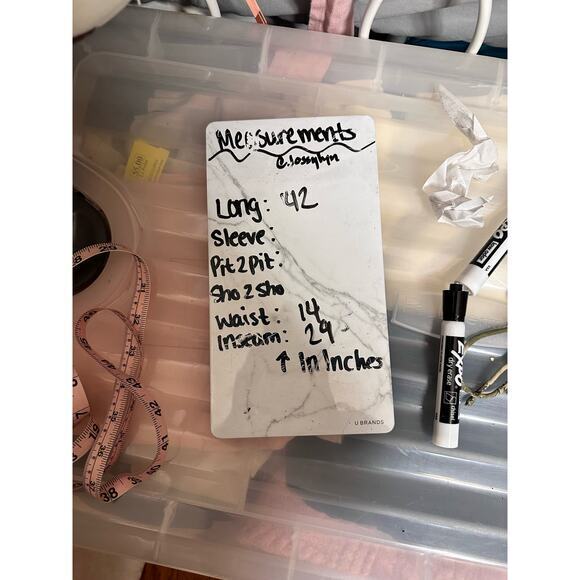 Measurements
Long: 42
Sleeve:
Pit 2 Pit:
Sho 2 Sho
Waist: 14
Inseum: 29
↑ In Inches
U BRANDS
$5.00
EXPO
dry erase